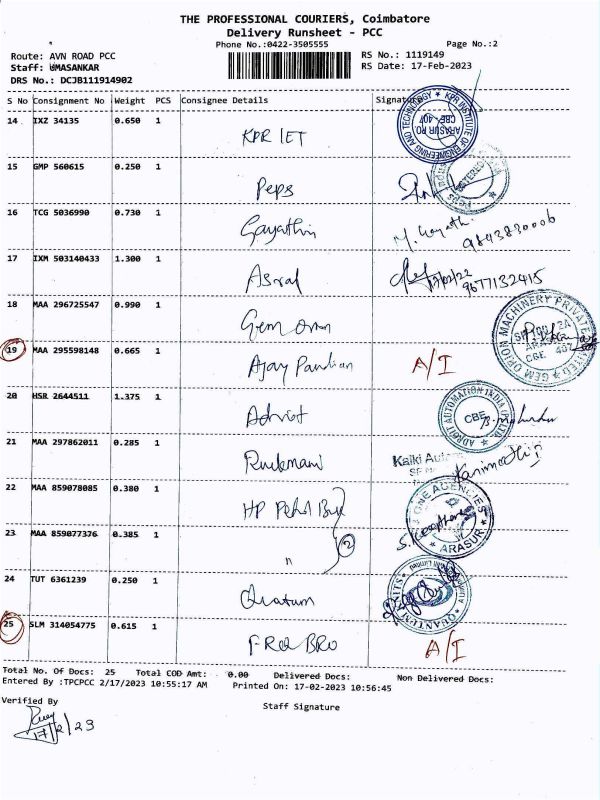 THE PROFESSIONAL COURIERS, Coimbatore
Delivery Runsheet - PCC
Phone No.:0422-3505555 Page No.:2
Route: AVN ROAD PCC RS No.: 1119149
Staff: UMASANKAR RS Date: 17-Feb-2023
DRS No.: DCJB111914902
S No Consignment No Weight PCS Consignee Details Signature
14 IXZ 34135 0.650 1 KPR IET
KPR INSTITUTE OF ENGINEERING AND TECHNOLOGY ARASUR PO CBE - 407
15 GMP 560615 0.250 1 Peps
16 TCG 5036990 0.730 1 Gayathiri
9843830006
17 IXM 503140433 1.300 1
9677132415
18 MAA 296725547 0.990 1 Gem
GEM ORION MACHINERY PRIVATE LIMITED
19 MAA 295598148 0.665 1 Ajay Pandian A/I
20 HSR 2644511 1.375 1
AUTOMATION INDIA CBE
21 MAA 297862011 0.285 1 Rukmani
Kaiki
22 MAA 859078085 0.380 1 HP
AGENCIES ARASUR
23 MAA 859077376 0.385 1 " 2
24 TUT 6361239 0.250 1
25 SLM 314054775 0.615 1 BRO A/I
Total No. Of Docs: 25 Total COD Amt: 0.00 Delivered Docs: Non Delivered Docs:
Entered By :TPCPCC 2/17/2023 10:55:17 AM Printed On: 17-02-2023 10:56:45
Verified By Staff Signature
17/2/23